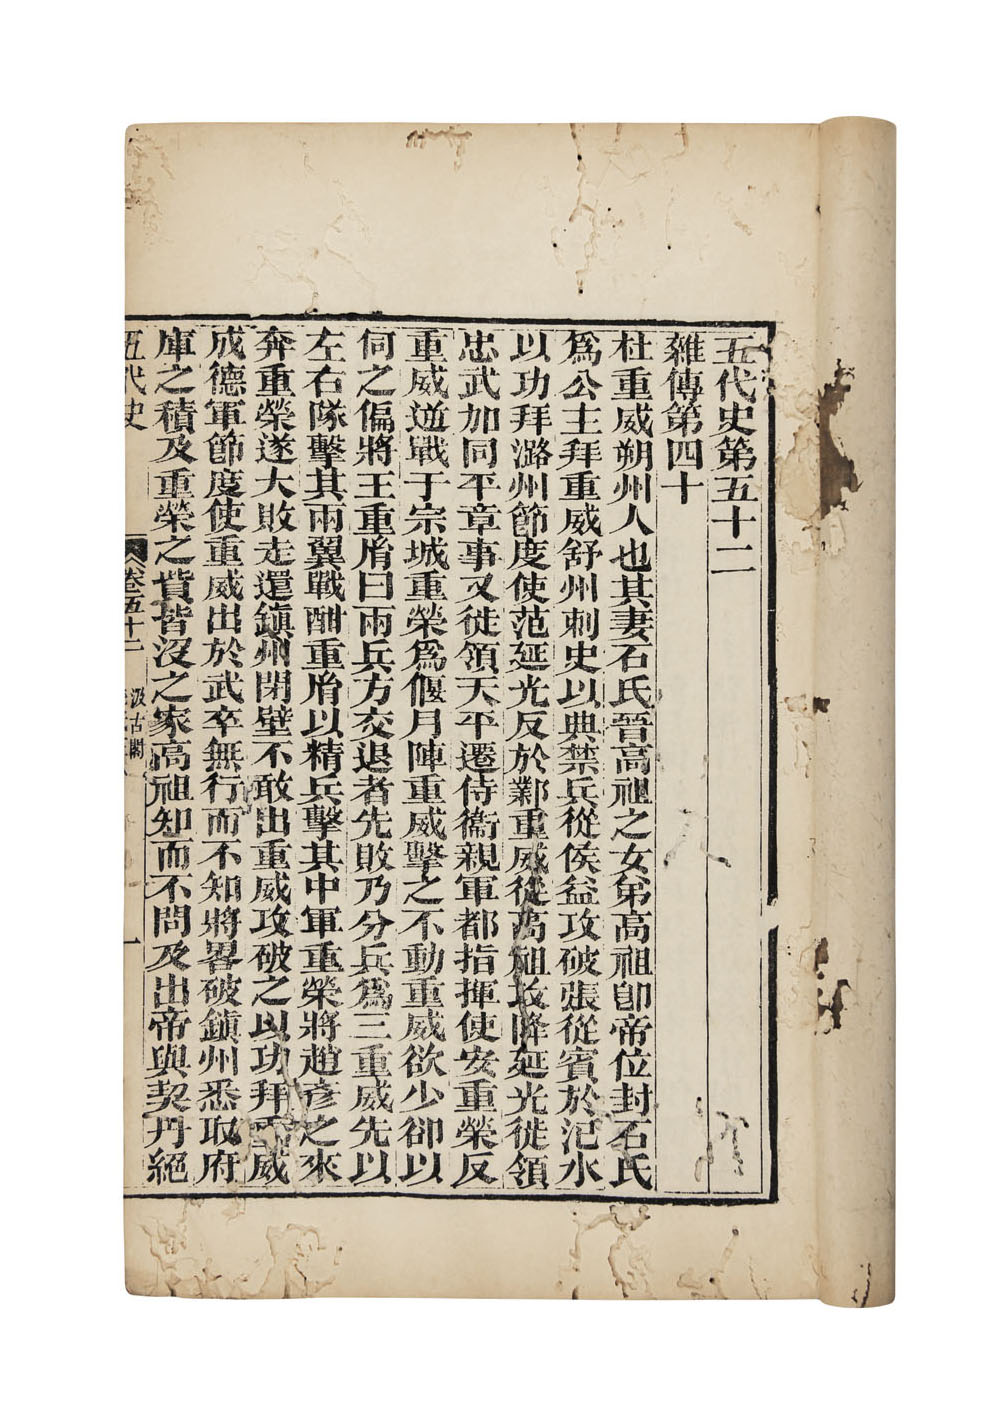 五代史第五十二
雜傳第四十
杜重威朔州人也其妻石氏晉高祖之女弟高祖卽帝位封石氏
爲公主拜重威舒州刺史以典禁兵從侯益攻破張從賓於汜水
以功拜潞州節度使范延光反於鄴重威從高祖攻降延光徙領
忠武加同平章事又徙領天平遷侍衞親軍都指揮使安重榮反
重威逆戰于宗城重榮爲偃月陣重威擊之不動重威欲少卻以
伺之偏將王重胤曰兩兵方交退者先敗乃分兵爲三重威先以
左右隊擊其兩翼戰酣重胤以精兵擊其中軍重榮將趙彥之來
奔重榮遂大敗走還鎮州閉壁不敢出重威攻破之以功拜重威
成德軍節度使重威出於武卒無行而不知將畧破鎮州悉取府
庫之積及重榮之貲皆沒之家高祖知而不問及出帝與契丹絕
五代史 卷五十二 汲古閣 一